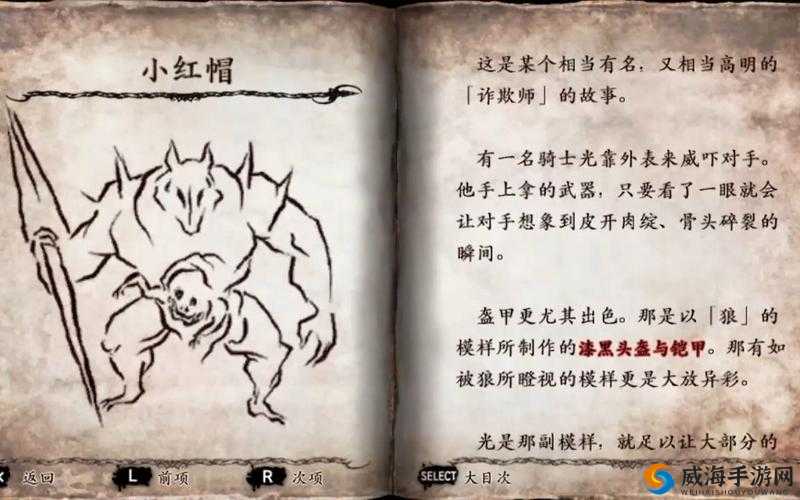 小红帽
这是某个相当有名，又相当高明的
「诈欺师」的故事。
有一名骑士光靠外表来威吓对手。
他手上拿的武器，只要看了一眼就会
让对手想象到皮开肉绽、骨头碎裂的
瞬间。
盔甲更尤其出色。那是以「狼」的
模样所制作的漆黑头盔与铠甲。那有如
被狼所瞪视的模样更是大放异彩。
光是那副模样，就足以让大部分的
返回 L 前项 R 次项 SELECT 大目次
威海手游网
WEIHAISHOUYOUWANG